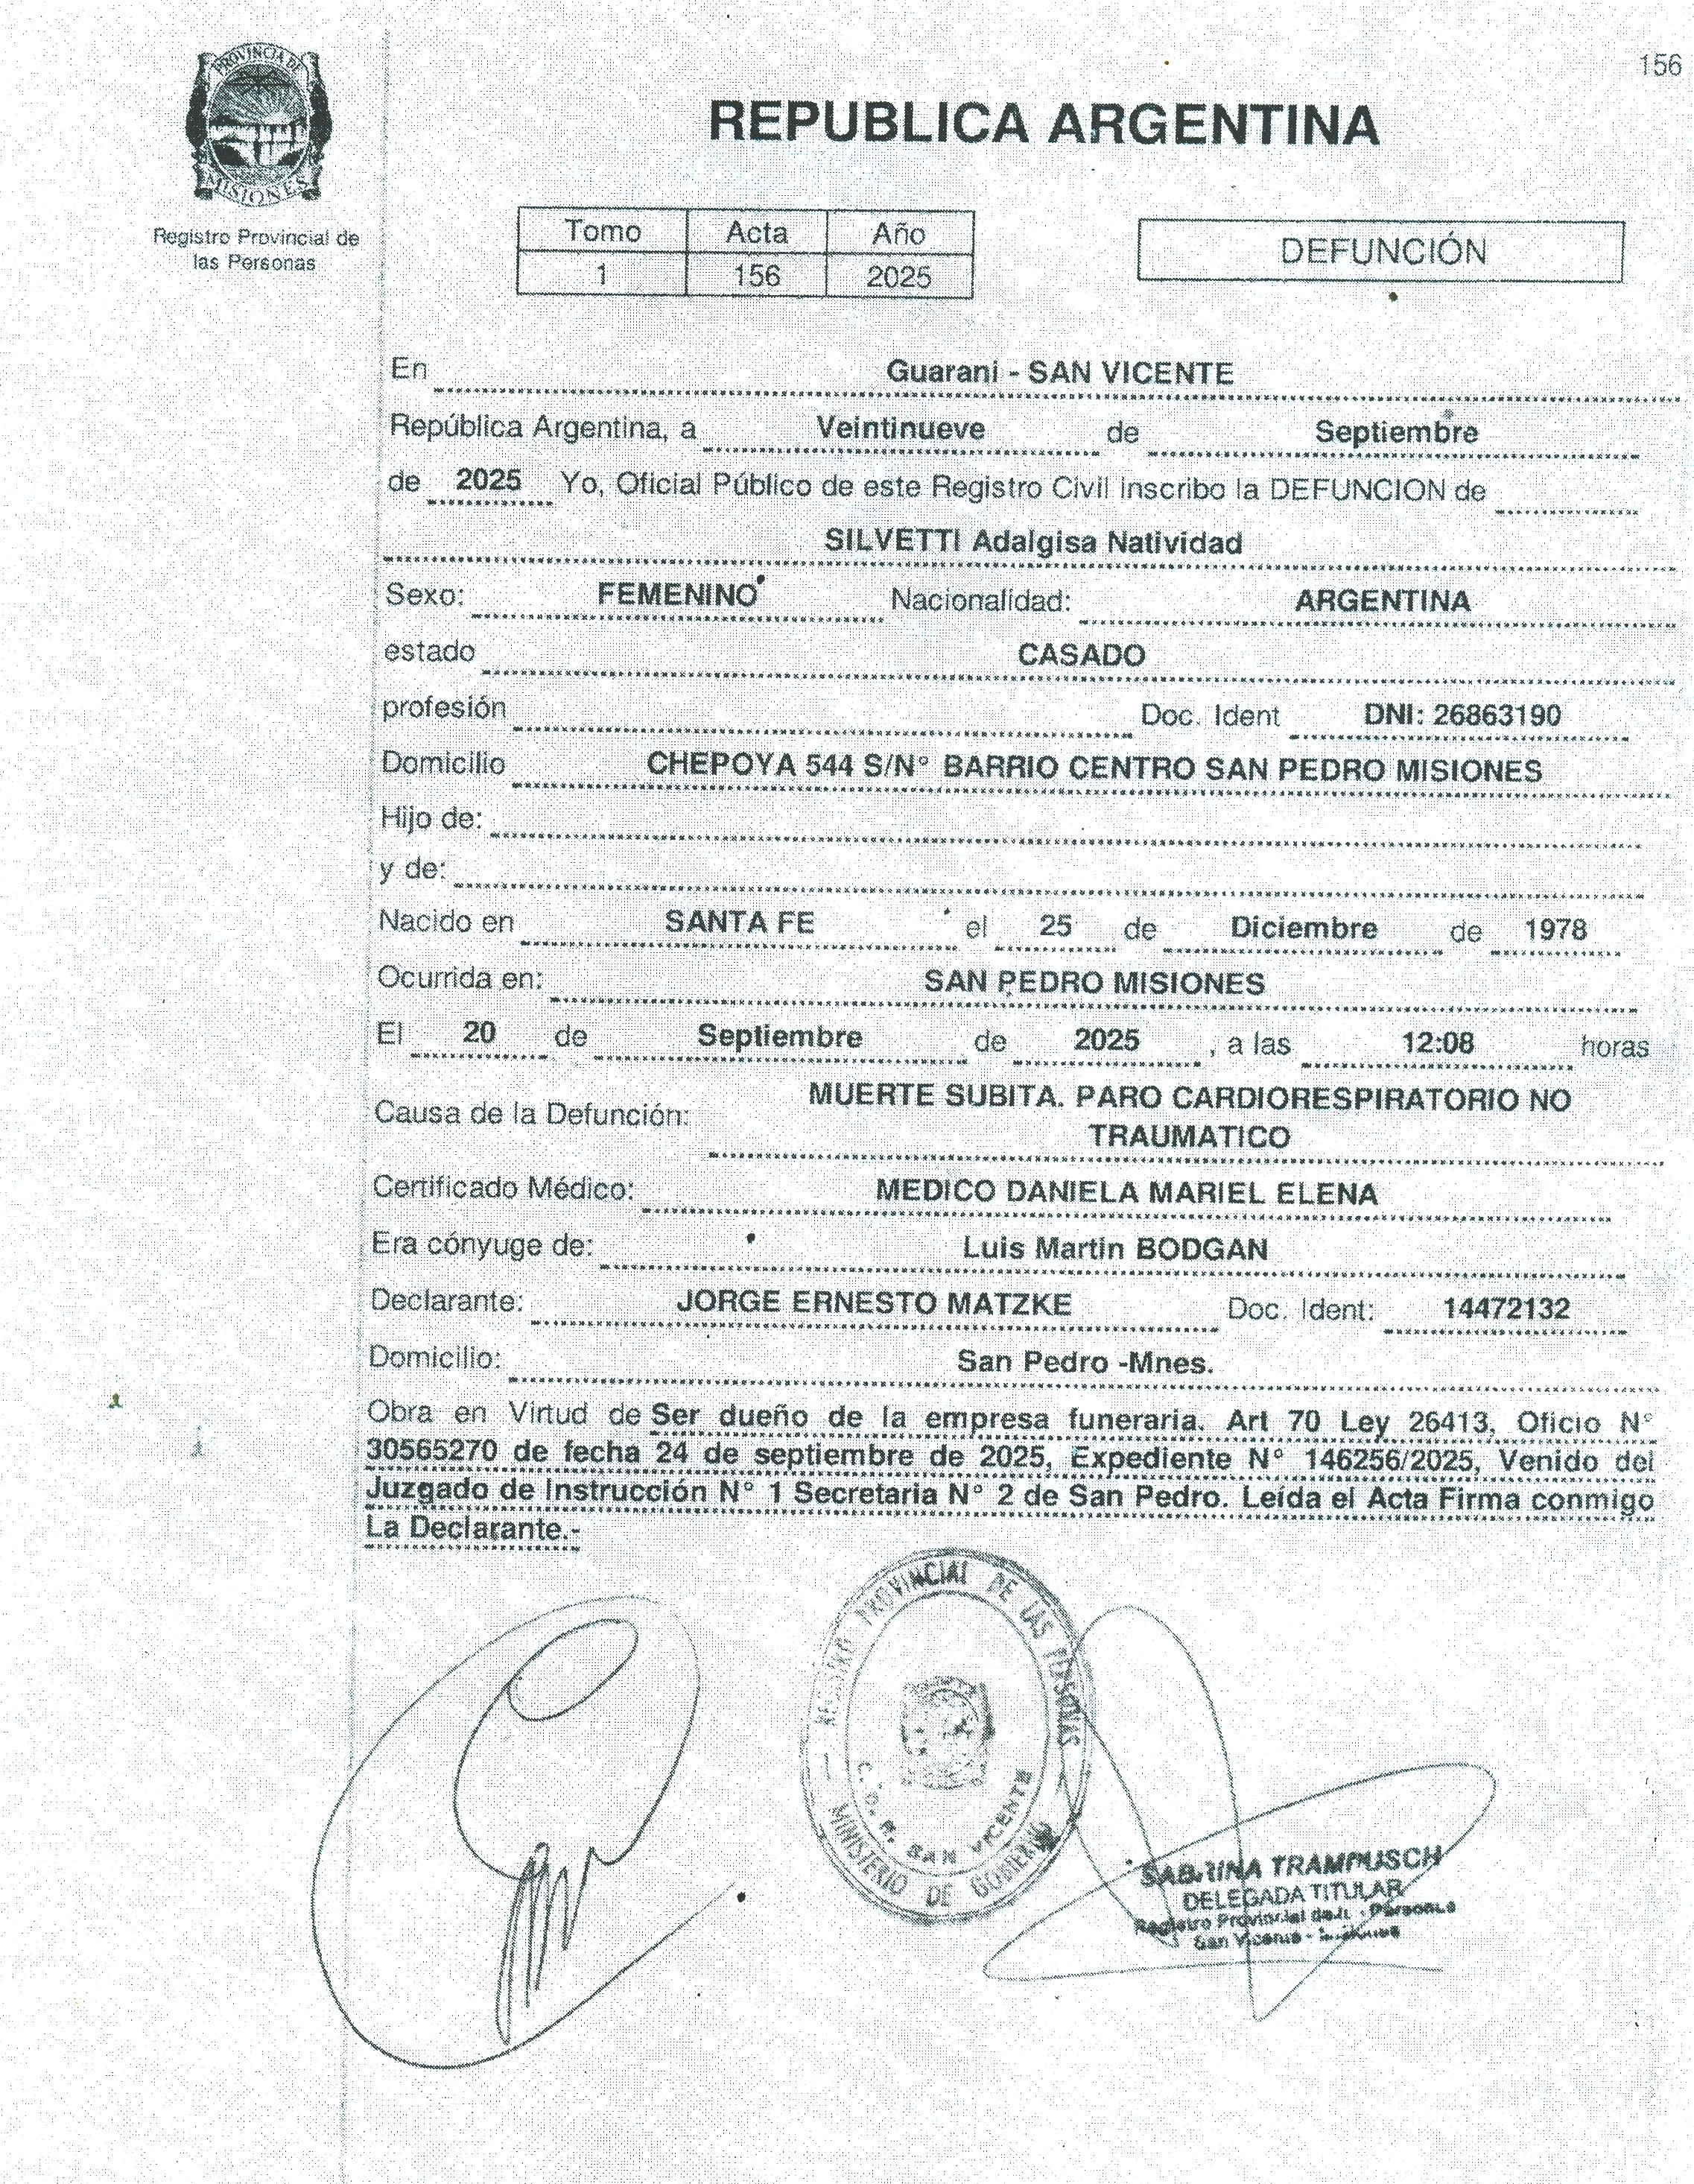 156
PROVINCIA DE
MISIONES
Registro Provincial de
las Personas
REPUBLICA ARGENTINA
Tomo Acta Año
1 156 2025
DEFUNCIÓN
En Guarani - SAN VICENTE
República Argentina, a Veintinueve de Septiembre
de 2025 Yo, Oficial Público de este Registro Civil inscribo la DEFUNCION de
SILVETTI Adalgisa Natividad
Sexo: FEMENINO Nacionalidad: ARGENTINA
estado CASADO
profesión Doc. Ident DNI: 26863190
Domicilio CHEPOYA 544 S/N° BARRIO CENTRO SAN PEDRO MISIONES
Hijo de:
y de:
Nacido en SANTA FE el 25 de Diciembre de 1978
Ocurrida en: SAN PEDRO MISIONES
El 20 de Septiembre de 2025 , a las 12:08 horas
Causa de la Defunción: MUERTE SUBITA. PARO CARDIORESPIRATORIO NO
TRAUMATICO
Certificado Médico: MEDICO DANIELA MARIEL ELENA
Era cónyuge de: Luis Martin BODGAN
Declarante: JORGE ERNESTO MATZKE Doc. Ident: 14472132
Domicilio: San Pedro -Mnes.
Obra en Virtud de Ser dueño de la empresa funeraria. Art 70 Ley 26413, Oficio N°
30565270 de fecha 24 de septiembre de 2025, Expediente N° 146256/2025, Venido del
Juzgado de Instrucción N° 1 Secretaria N° 2 de San Pedro. Leída el Acta Firma conmigo
La Declarante.-
REGISTRO PROVINCIAL DE LAS PERSONAS
C.D.R. SAN VICENTE
MINISTERIO DE GOBIERNO
SABRINA TRAMPUSCH
DELEGADA TITULAR
Registro Provincial de Personas
San Vicente - Misiones